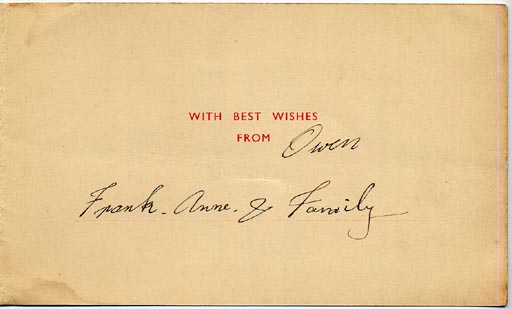 WITH BEST WISHES
FROM Owen
Frank. Anne. & Family